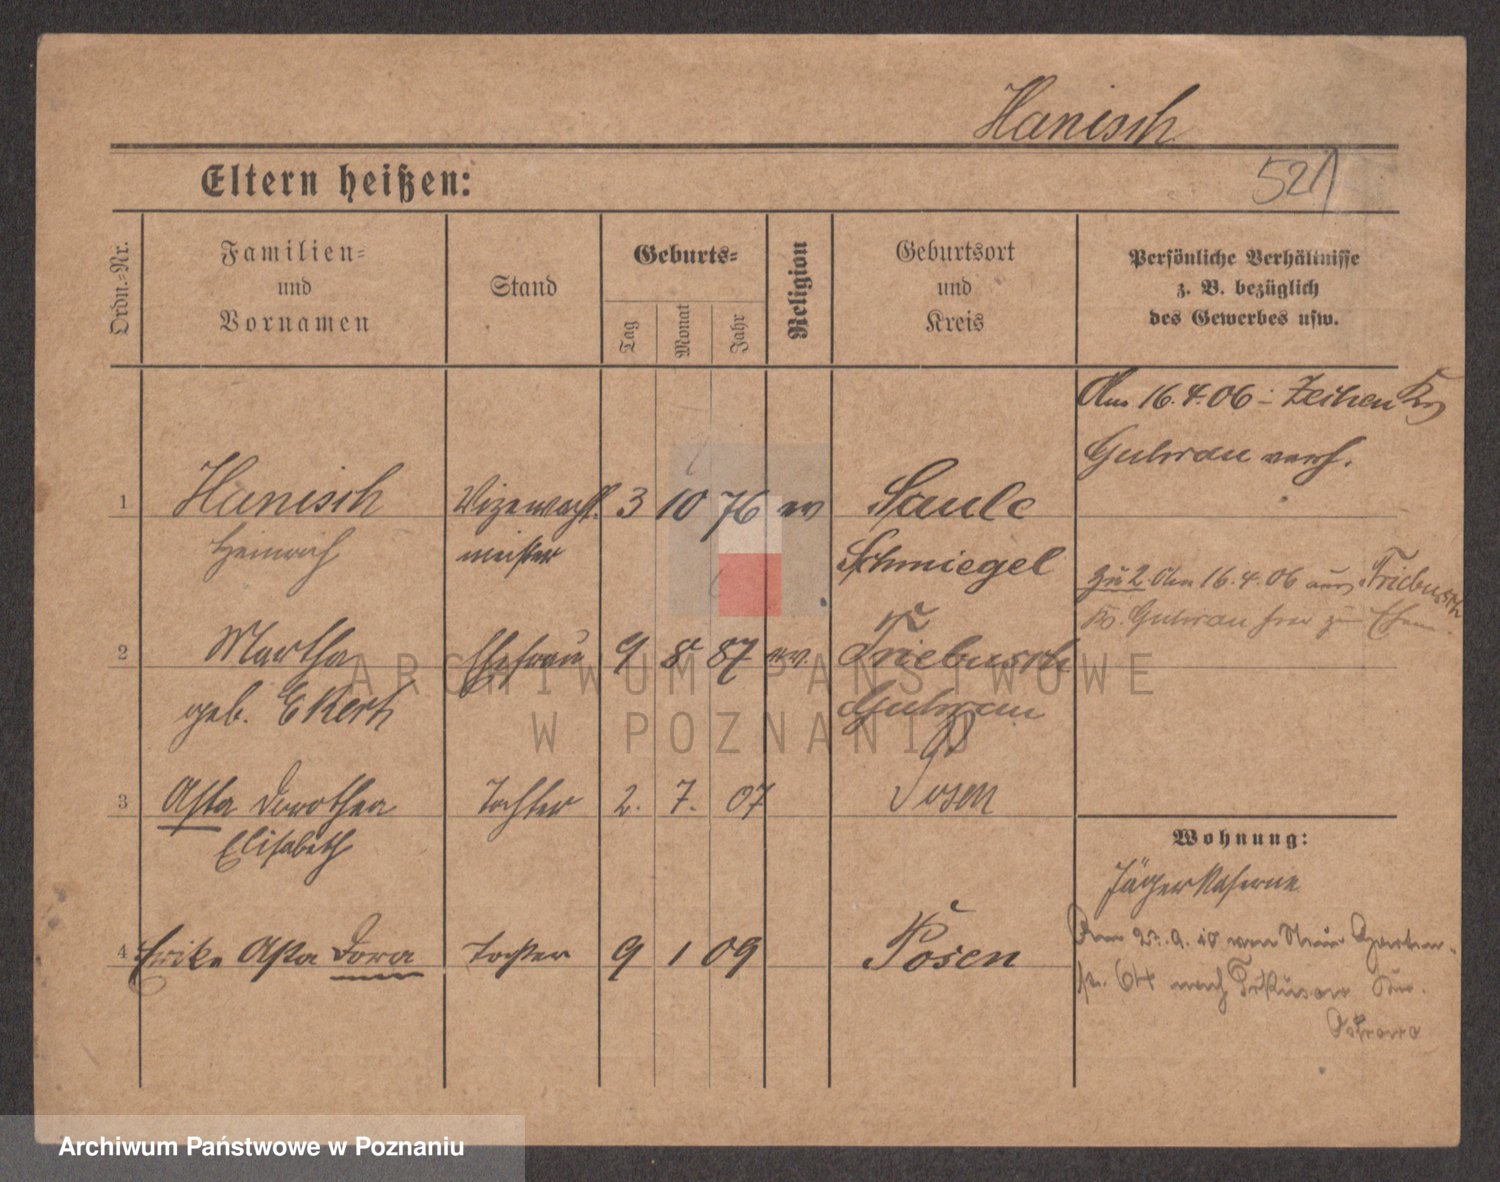 Hanisch
521
Eltern heißen:
Ordn.-Nr.
Familien-
und
Vornamen
Stand
Geburts-
Tag
Monat
Jahr
Religion
Geburtsort
und
Kreis
Persönliche Verhältnisse
z. B. bezüglich
des Gewerbes usw.
Am 16.4.06 - Zeihen Kr
Guhrau verh.
1 Hanisch Vizewacht- 3 10 76 ev Saule
Heinrich meister Schmiegel
zu 2. Am 16.4.06 aus Triebusch
Kr. Guhrau hier zu
2 Martha Ehefrau 9 8 87 ev. Triebusch
geb. Ekert Guhrau
3 Asta Dorothea Tochter 2. 7. 07 Posen
Elisabeth
Wohnung:
Jägerkaserne
4 Erike Asta Dora Tochter 9 1 09 Posen
Am 10 von Neue Garten-
str. 64 nach
Ostrowo
ARCHIWUM PAŃSTWOWE
W POZNANIU
Archiwum Państwowe w Poznaniu